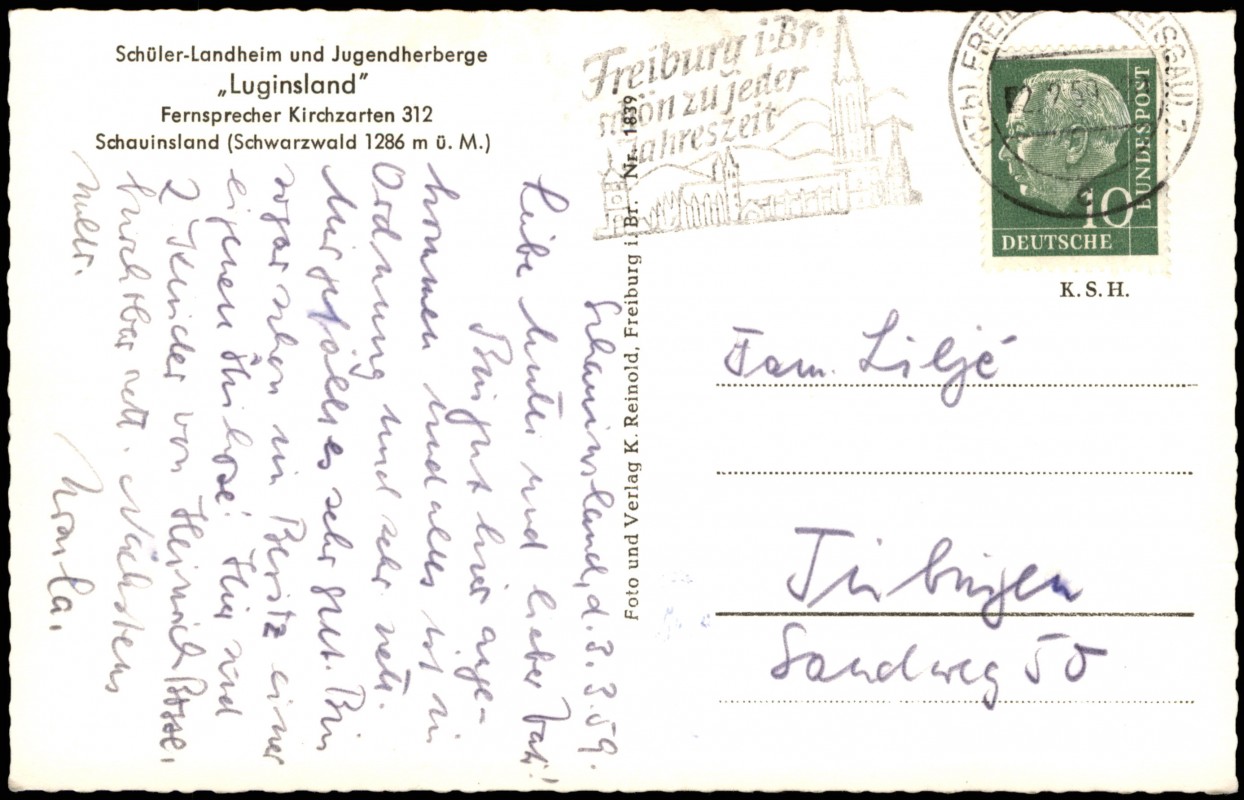 Schüler-Landheim und Jugendherberge
„Luginsland"
Fernsprecher Kirchzarten 312
Schauinsland (Schwarzwald 1286 m ü. M.)
Freiburg i. Br.
schön zu jeder
Jahreszeit
(17b) FREIBURG BREISGAU 1
59
c
10
DEUTSCHE
BUNDESPOST
K. S. H.
Foto und Verlag K. Reinold, Freiburg i. Br. Nr. 1839
Schauinsland, d. 3. 3. 59.
Liebe Mutti und lieber Vati!
Bin gut hier ange-
kommen und alles ist in
Ordnung und sehr nett.
Mir gefällt es sehr gut. Bin
sogar schon in Besitz einer
eigenen Skihose! Hier sind
2 Kinder von Heinrich
furchtbar nett. Nächstens
mehr.
Fam. Liljé
Tübingen
Sandweg 50